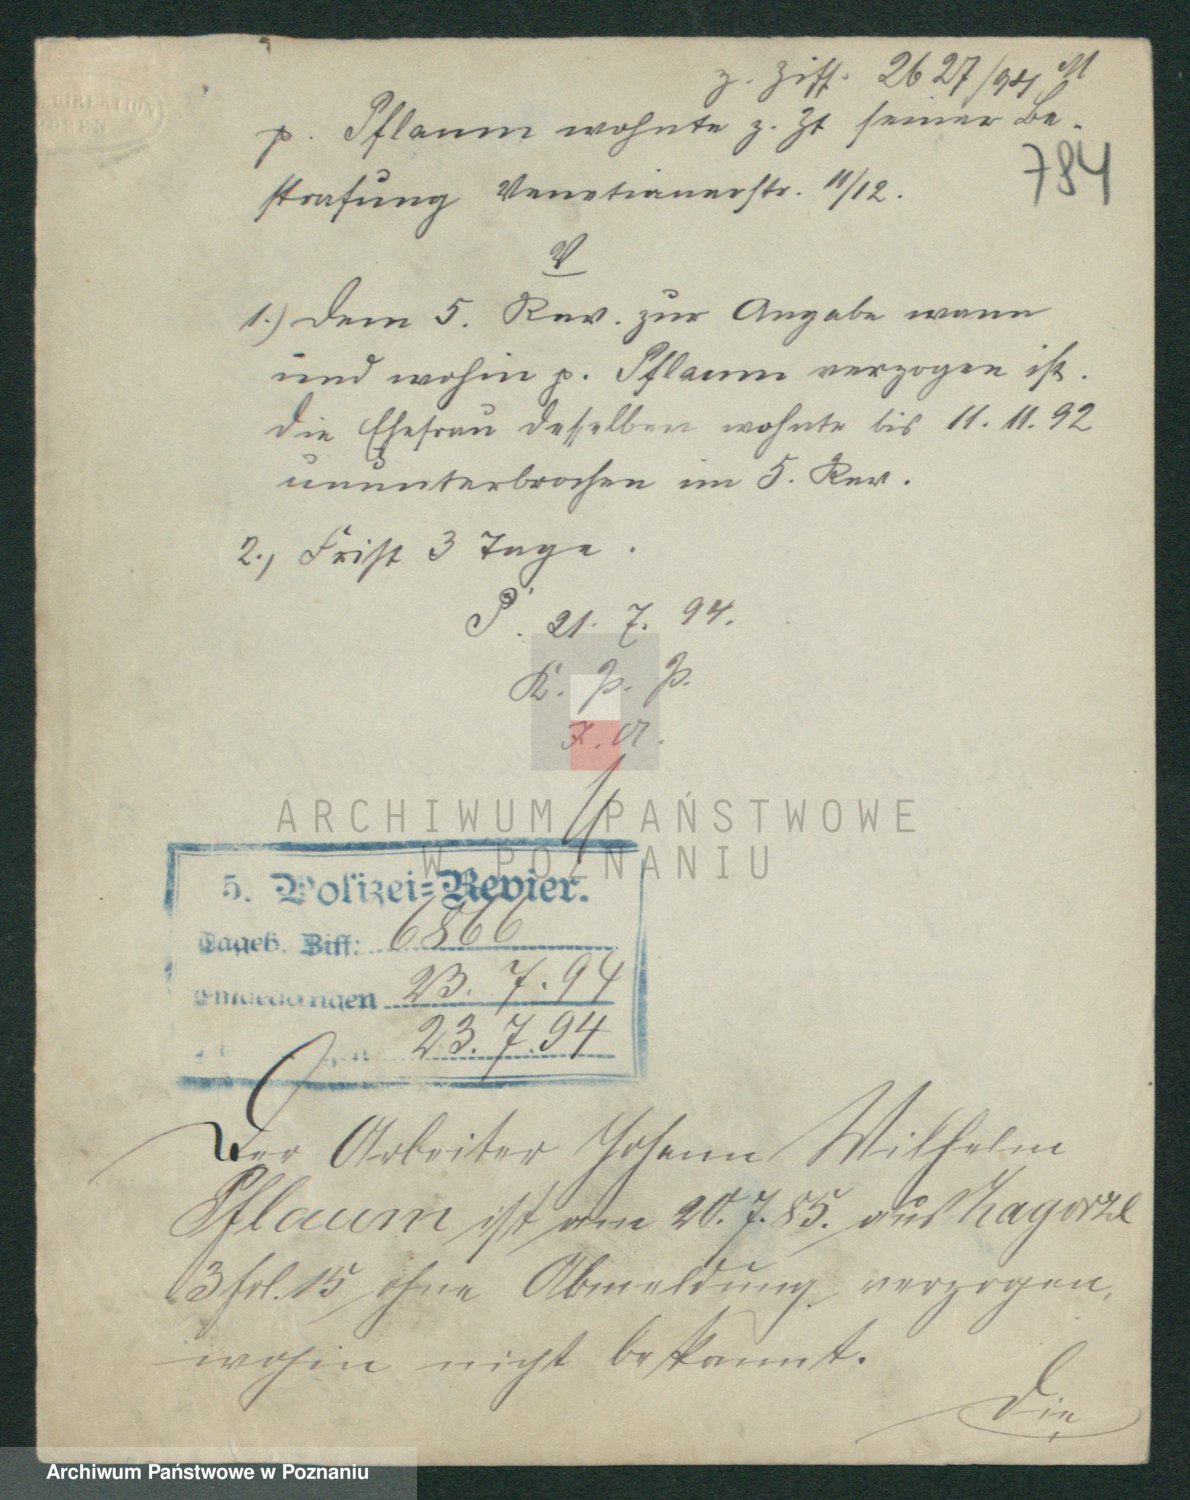 z. Ziff. 2627/94 M
p. Pflaum wohnte z. Zt seiner Be-
784
strafung Venetianerstr. 11/12.
V
1.) dem 5. Rev. zur Angabe wann
und wohin p. Pflaum verzogen ist.
Die Ehefrau desselben wohnte bis 11.11.92
ununterbrochen im 5. Rev.
2., Frist 3 Tage.
P. 21. 7. 94.
K. P. P.
I. A.
ARCHIWUM PAŃSTWOWE
W POZNANIU
5. Polizei=Revier.
Tageb. Ziff: 6866
Eingegangen 23. 7. 94
23. 7. 94
Der Arbeiter Johann Wilhelm
Pflaum ist am 20. 7. 85. aus Zagorze
3 fol. 15 ohne Abmeldung verzogen,
wohin nicht bekannt.
Die
Archiwum Państwowe w Poznaniu